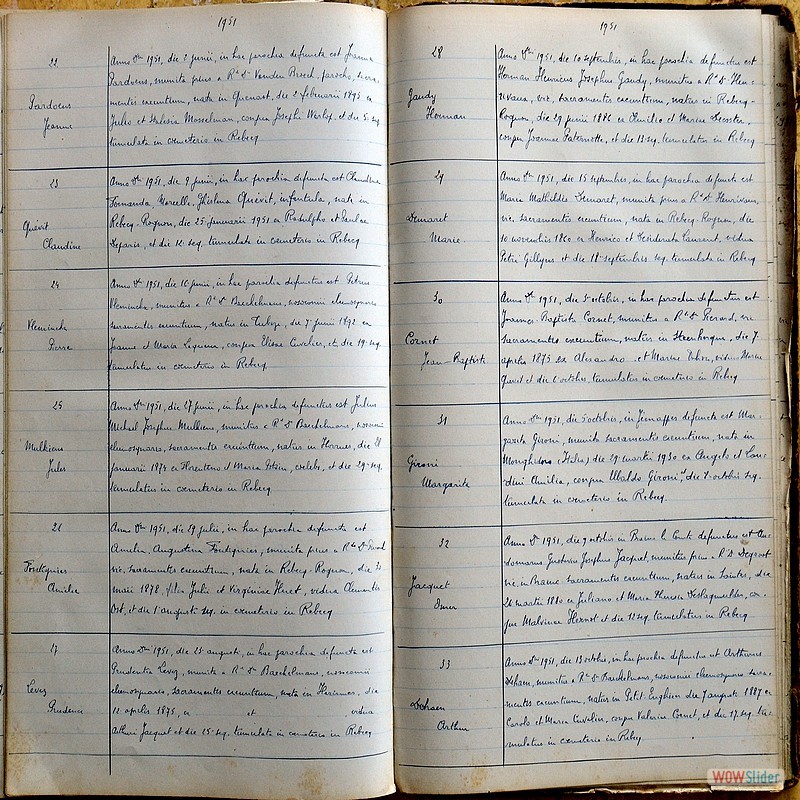 1951
22
Pardoens
Jeanne
Anno Dni 1951, die 2 junii, in hac parochia defuncta est Joanna
Pardoens, munita prius a Rdo Dno Vanden Bosch, parocho, sacra-
mentis exeuntium, nata in Quenast, die 2 februarii 1895 ex
Julio et Maria Mosselman, conjux Josephi Warlop, et die 5 seq.
tumulata in cœmeterio in Rebecq
23
Quévit
Claudine
Anno Dni 1951, die 9 junii, in hac parochia defuncta est Claudina
Fernanda Marcella Ghislena Quévit, infantula, nata in
Rebecq-Rognon, die 25 januarii 1951 ex Radulpho et Paula
Separis, et die 12 seq. tumulata in cœmeterio in Rebecq
24
Vleminckx
Pierre
Anno Dni 1951, die 16 junii, in hac parochia defunctus est Petrus
Vleminckx, munitus a Rdo Dno Baechelmans, nosocomii eleemosynario
sacramentis exeuntium, natus in Tubize, die 7 junii 1872 ex
Joanne et Maria Lequeux, conjux Elisae Cuvelier, et die 19 seq.
tumulatus in cœmeterio in Rebecq
25
Mulkiens
Jules
Anno Dni 1951, die 27 junii, in hac parochia defunctus est Julius
Michael Josephus Mulkiens, munitus a Rdo Dno Baechelmans, nosocomii
eleemosynario, sacramentis exeuntium, natus in Hornues, die 28
januarii 1874 ex Florentino et Maria, celebs, et die 29 seq.
tumulatus in cœmeterio in Rebecq
26
Amélie
Anno Dni 1951, die 29 julii, in hac parochia defuncta est
Amelia Augustina, munita prius a Rdo Dno
vic. sacramentis exeuntium, nata in Rebecq-Rognon, die
maii 1878, filia Julii et Virginiae Heret, vidua Clementis
Ost, et die 1 augusti seq. in cœmeterio in Rebecq
27
Levez
Prudence
Anno Dni 1951, die 23 augusti, in hac parochia defuncta est
Prudentia Levez, munita a Rdo Dno Baechelmans, nosocomii
eleemosynario, sacramentis exeuntium, nata in, die
12 aprilis 1875, ex et vidua
Arthuri Jacquet et die 25 seq. tumulata in cœmeterio in Rebecq
1951
28
Gaudy
Herman
Anno Dni 1951, die 10 septembris, in hac parochia defunctus est
Herman Henricus Josephus Gaudy, munitus a Rdo Dno Hen-
rivaux, vic. sacramentis exeuntium, natus in Rebecq-
Rognon, die 29 junii 1886 ex Emilio et Maria Lecoster,
conjux Joannae Paternotte, et die 13 seq. tumulatus in Rebecq
29
Demaret
Marie
Anno Dni 1951, die 15 septembris, in hac parochia defuncta est
Maria Mathilda Demaret, munita prius a Rdo Dno Henrivaux,
vic. sacramentis exeuntium, nata in Rebecq-Rognon, die
10 novembris 1860 ex Henrico et Desiderata Laurent, vidua
Petri Gillyns et die 18 septembris seq. tumulata in Rebecq
30
Cornet
Jean-Baptiste
Anno Dni 1951, die 3 octobris, in hac parochia defunctus est
Joannes-Baptista Cornet, munitus a Rdo Dno Pierard, vic
sacramentis exeuntium, natus in Steenkerque, die 7
aprilis 1873 ex Alexandro et Maria, viduus Mariae
et die 6 octobris, tumulatus in cœmeterio in Rebecq
31
Gironi
Margarita
Anno Dni 1951, die 5 octobris, in Jemappes defuncta est Mar-
garita Gironi, munita sacramentis exeuntium, nata in
Monghidoro (Italia) die 29 martii 1930 ex Angelo et Lan-
dini Amilia, conjux Ubaldo Gironi, die 8 octobris seq.
tumulata in cœmeterio in Rebecq
32
Jacquet
Omer
Anno Dni 1951, die 9 octobris in Braine le Comte defunctus est Au-
domarus Gustavus Josephus Jacquet, munitus prius a Rdo Dno Degroot
vic. in Braine sacramentis exeuntium, natus in Saintes, die
26 martii 1880 ex Juliano et Maria Theresia, con-
jux Malvinae Hernot et die 12 seq. tumulatus in Rebecq
33
Dehaen
Arthur
Anno Dni 1951, die 13 octobris, in hac parochia defunctus est Arthurus
Dehaen, munitus a Rdo Dno Baechelmans, nosocomii eleemosynario sacra-
mentis exeuntium, natus in Petit-Enghien die 7 augusti 1887 ex
Carolo et Maria Cuvelier, conjux Valeriae Cornet, et die 17 seq. tu-
mulatus in cœmeterio in Rebecq
WOWSlider